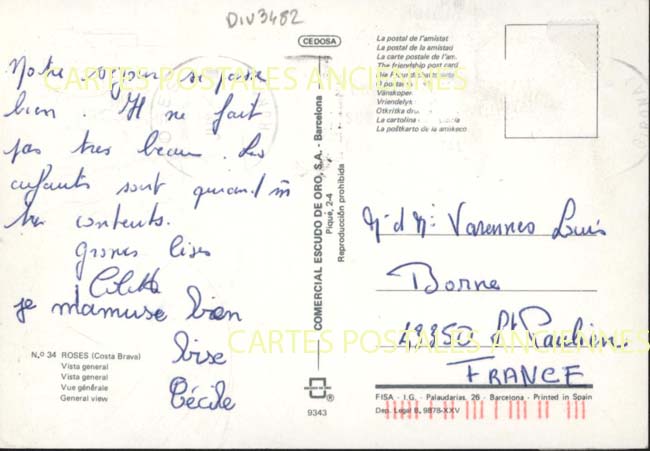 DIV3482
Notre séjour se passe
bien. Il ne fait
pas tres beau. Les
enfants sont quand m
tres contents.
Grosses bises
Colette
je mamuse bien
bise
Cécile
N.º 34 ROSES (Costa Brava)
Vista general
Vista general
Vue générale
General view
CEDOSA
COMERCIAL ESCUDO DE ORO, S.A. - Barcelona
Piqué, 2-4
Reproducción prohibida
9343
La postal de l'amistat
La postal de la amistad
La carte postale de l'am.
The friendship post card
O postal
Vänskaper
Vriendelyk
Otkritka dru
La cartolina
La poŝtkarto de la amikeco
Mr d Me Varennes Luis
Borne
43350 St Paulien.
FRANCE
FISA - I.G. - Palaudarias, 26 - Barcelona - Printed in Spain
Dep. Legal B. 9878-XXV
CARTES POSTALES ANCIENNES
CARTES POSTALES ANCIENNES